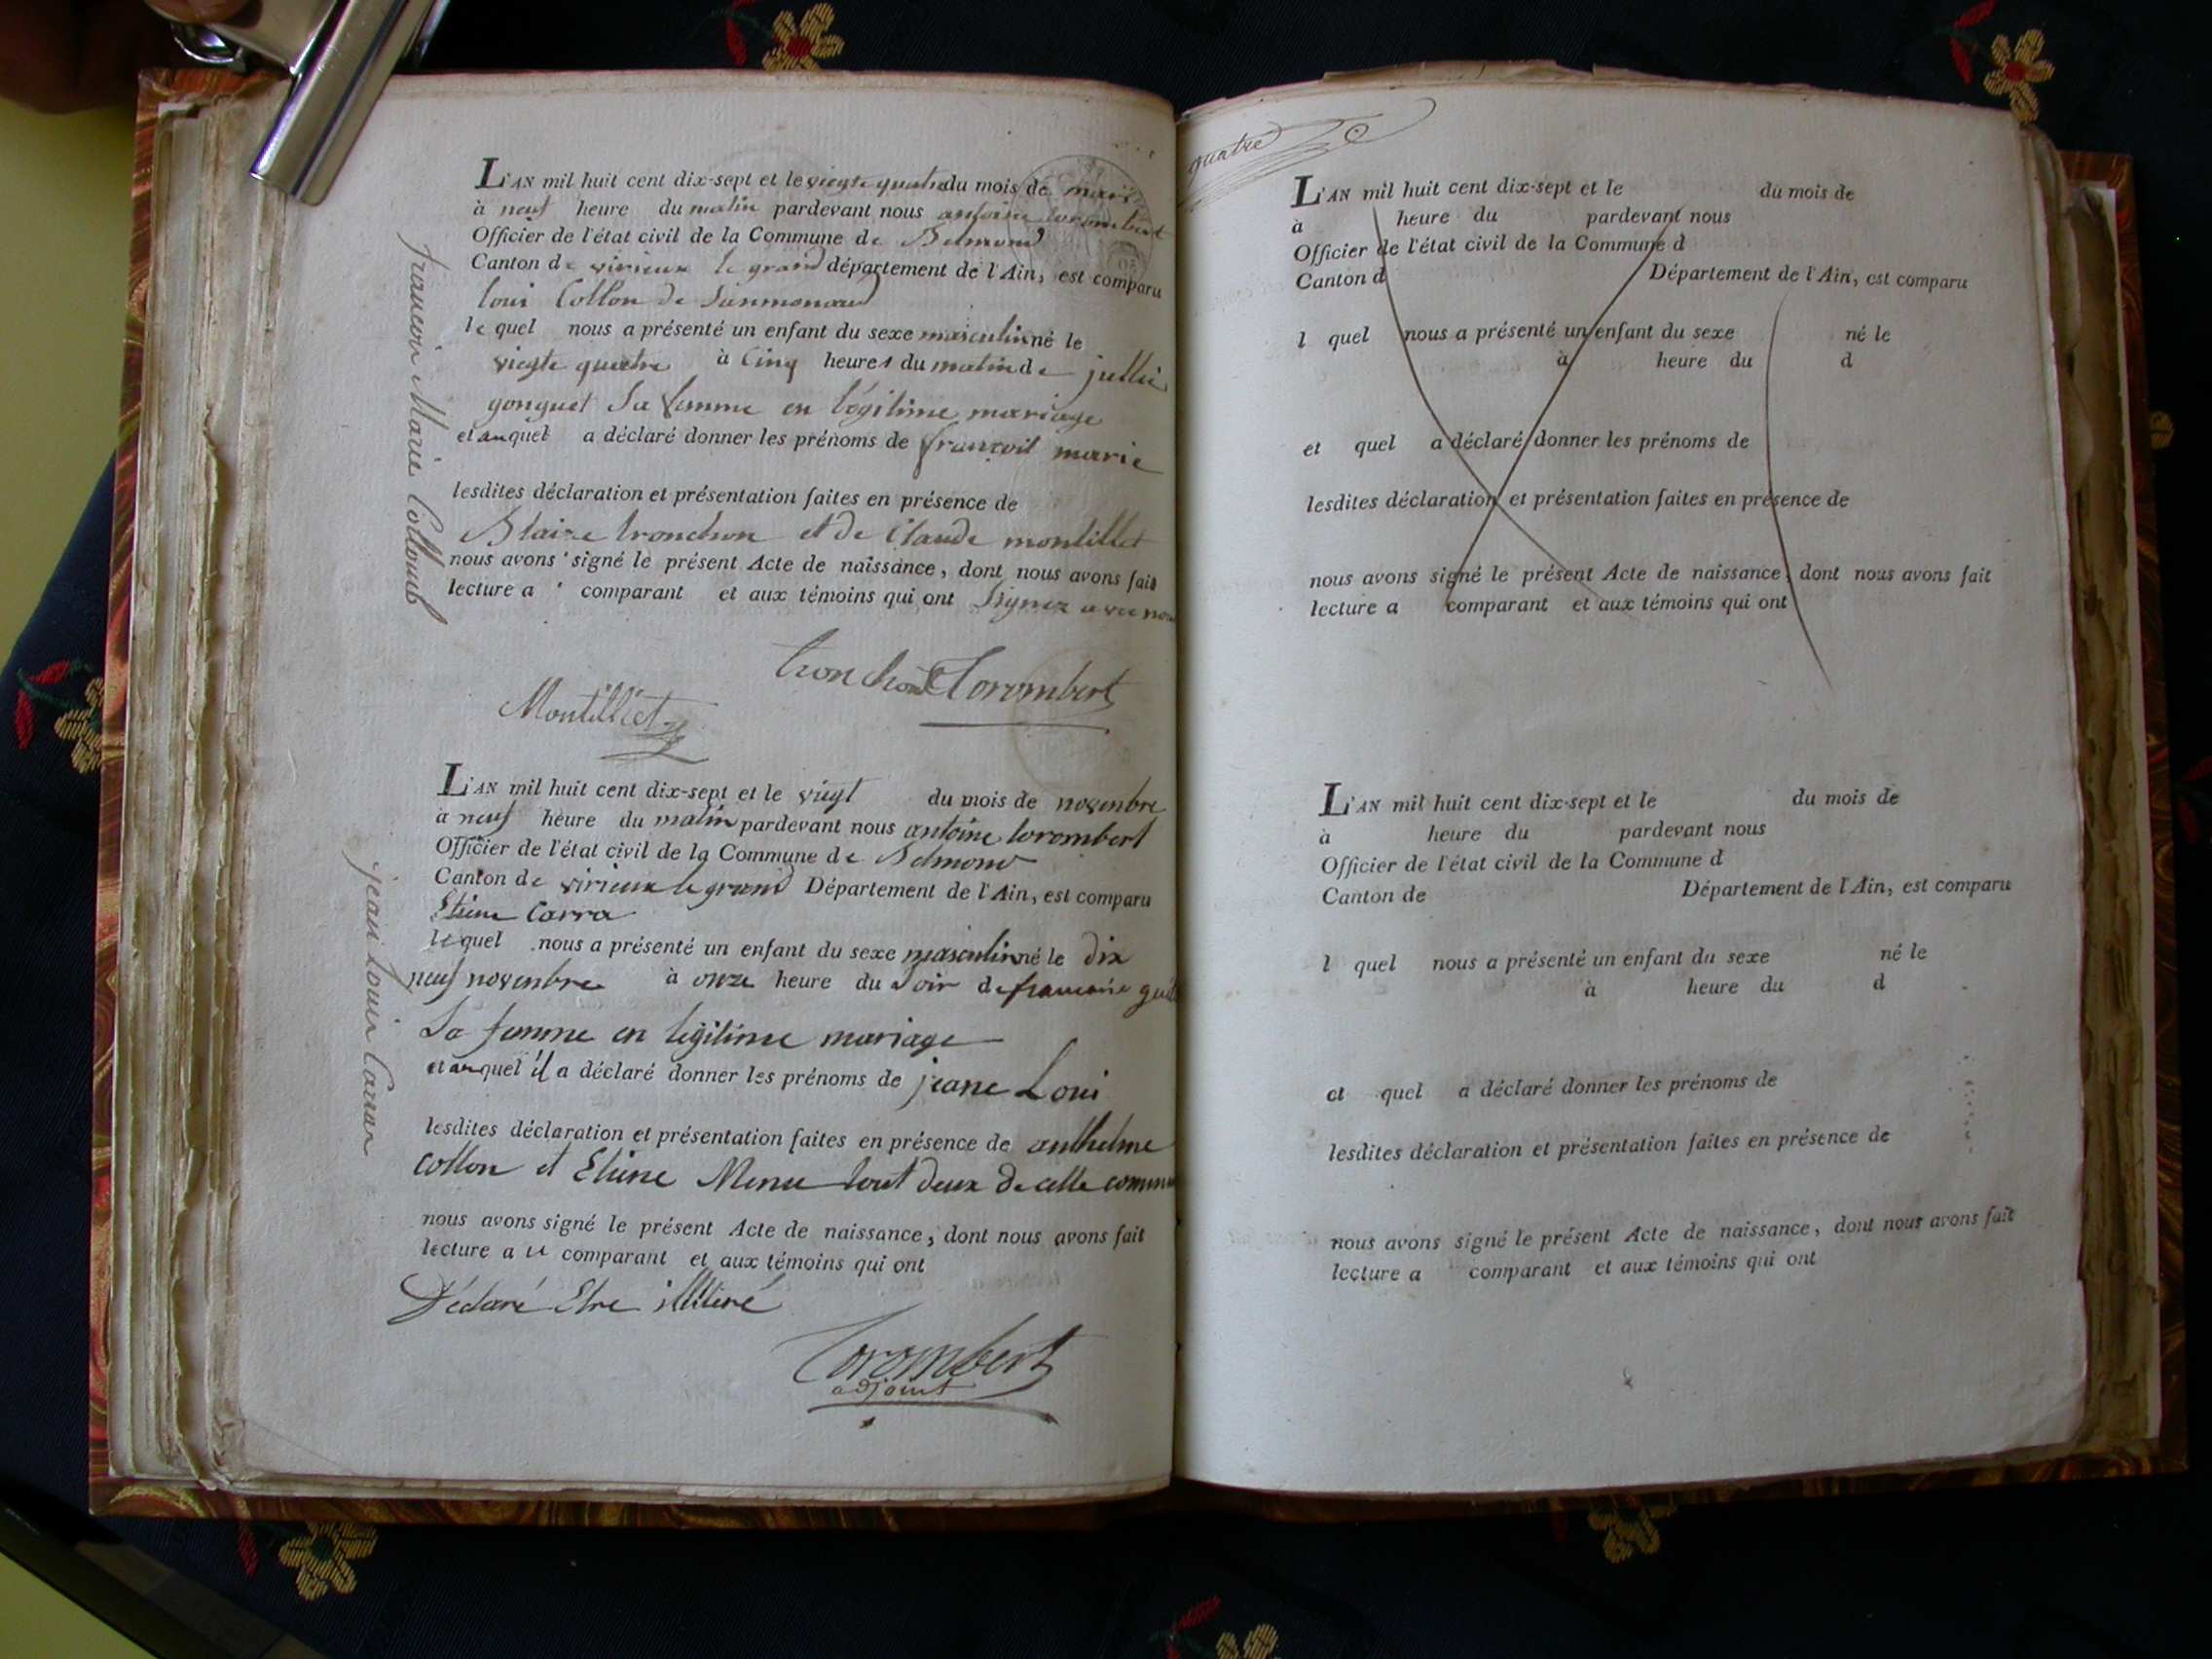 L'AN mil huit cent dix-sept et le viegte quatre du mois de mars
à neuf heure du matin pardevant nous antoine torombert
Officier de l'état civil de la Commune de Belmond
Canton de virieux le grand département de l'Ain, est comparu
loui Collon de
le quel nous a présenté un enfant du sexe masculin né le
viegte quatre à Cinq heures du matin de jullie
gonguet Sa femme en légitime mariage
et auquel a déclaré donner les prénoms de françoit marie
lesdites déclaration et présentation faites en présence de
Blaise tronchon et de Claude montillet
nous avons signé le présent Acte de naissance, dont nous avons fait
lecture a comparant et aux témoins qui ont Signez avec nous
tronchon Torombert
Montilliet
francois Marie Colloud
L'AN mil huit cent dix-sept et le viegt du mois de novenbre
à neuf heure du matin pardevant nous antoine torombert
Officier de l'état civil de la Commune de Belmond
Canton de virieux le grand Département de l'Ain, est comparu
Etiene Carra
le quel nous a présenté un enfant du sexe masculin né le dix
neuf novenbre à onze heure du Soir de
Sa femme en légitime mariage
et auquel il a déclaré donner les prénoms de jeane Loui
lesdites déclaration et présentation faites en présence de anthelme
collon et Etiene Menu tout deux de cette commune
nous avons signé le présent Acte de naissance, dont nous avons fait
lecture a u comparant et aux témoins qui ont
Déclaré Etre illitéré
Torombert
adjoint
jean Louis Carra
quatre
L'AN mil huit cent dix-sept et le du mois de
à heure du pardevant nous
Officier de l'état civil de la Commune d
Canton d Département de l'Ain, est comparu
l quel nous a présenté un enfant du sexe né le
à heure du d
et quel a déclaré donner les prénoms de
lesdites déclaration et présentation faites en présence de
nous avons signé le présent Acte de naissance, dont nous avons fait
lecture a comparant et aux témoins qui ont
L'AN mil huit cent dix-sept et le du mois de
à heure du pardevant nous
Officier de l'état civil de la Commune d
Canton de Département de l'Ain, est comparu
l quel nous a présenté un enfant du sexe né le
à heure du d
et quel a déclaré donner les prénoms de
lesdites déclaration et présentation faites en présence de
nous avons signé le présent Acte de naissance, dont nous avons fait
lecture a comparant et aux témoins qui ont